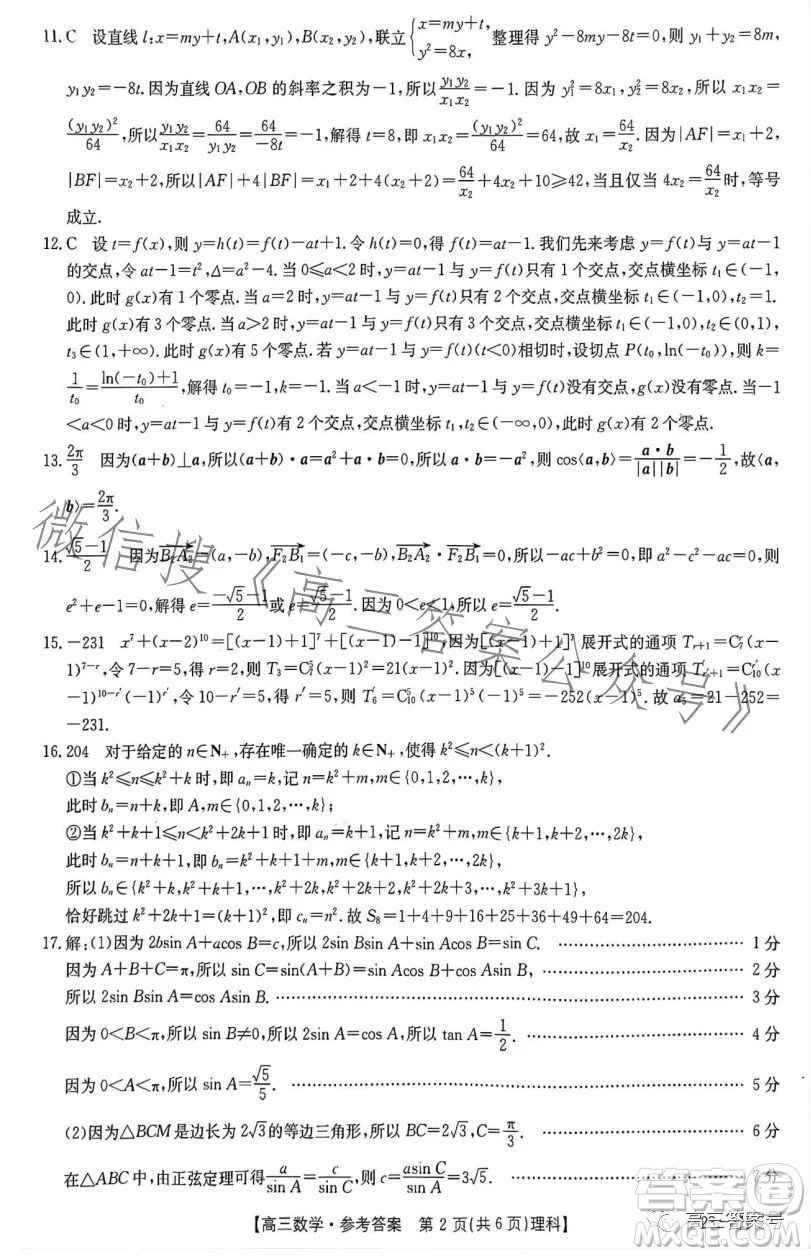 11. C 设直线 l:x=my+t,A(x₁,y₁),B(x₂,y₂),联立{x=my+t, y²=8x, 整理得 y²-8my-8t=0,则 y₁+y₂=8m,
y₁y₂=-8t.因为直线 OA,OB 的斜率之积为-1,所以 y₁y₂/x₁x₂=-1.因为 y₁²=8x₁,y₂²=8x₂,所以 x₁x₂=
(y₁y₂)²/64,所以 y₁y₂/x₁x₂=64/y₁y₂=64/-8t=-1,解得 t=8,即 x₁x₂=(y₁y₂)²/64=64,故 x₁=64/x₂.因为|AF|=x₁+2,
|BF|=x₂+2,所以|AF|+4|BF|=x₁+2+4(x₂+2)=64/x₂+4x₂+10≥42,当且仅当 4x₂=64/x₂时,等号
成立.
12. C 设 t=f(x),则 y=h(t)=f(t)-at+1.令 h(t)=0,得 f(t)=at-1.我们先来考虑 y=f(t)与 y=at-1
的交点,令 at-1=t²,Δ=a²-4.当 0≤a<2 时,y=at-1 与 y=f(t)只有 1 个交点,交点横坐标 t₁∈(-1,
0).此时 g(x)有 1 个零点.当 a=2 时,y=at-1 与 y=f(t)只有 2 个交点,交点横坐标 t₁∈(-1,0),t₂=1.
此时 g(x)有 3 个零点.当 a>2 时,y=at-1 与 y=f(t)只有 3 个交点,交点横坐标 t₁∈(-1,0),t₂∈(0,1),
t₃∈(1,+∞).此时 g(x)有 5 个零点.若 y=at-1 与 y=f(t)(t<0)相切时,设切点 P(t₀,ln(-t₀)),则 k=
1/t₀=ln(-t₀)+1/t₀,解得 t₀=-1,k=-1.当 a<-1 时,y=at-1 与 y=f(t)没有交点,g(x)没有零点.当-1
<a<0 时,y=at-1 与 y=f(t)有 2 个交点,交点横坐标 t₁,t₂∈(-∞,0),此时 g(x)有 2 个零点.
13. 2π/3 因为(a+b)⊥a,所以(a+b)·a=a²+a·b=0,所以 a·b=-a²,则 cos⟨a,b⟩=a·b/|a||b|=-1/2,故⟨a,
b⟩=2π/3.
14. √5-1/2 因为B₂A₂=(a,-b),F₂B₁=(-c,-b),B₂A₂·F₂B₁=0,所以-ac+b²=0,即 a²-c²-ac=0,则
e²+e-1=0,解得 e=-√5-1/2或 e=√5-1/2.因为 0<e<1,所以 e=√5-1/2.
15. -231 x⁷+(x-2)¹⁰=[(x-1)+1]⁷+[(x-1)-1]¹⁰,因为[(x-1)+1]⁷ 展开式的通项 Tᵣ₊₁=C₇ʳ(x-
1)⁷⁻ʳ,令 7-r=5,得 r=2,则 T₃=C₇²(x-1)⁵=21(x-1)⁵.因为[(x-1)-1]¹⁰展开式的通项 T′ᵣ′₊₁=C₁₀ʳ′(x
-1)¹⁰⁻ʳ′(-1)ʳ′,令 10-r′=5,得 r′=5,则 T′₆=C₁₀⁵(x-1)⁵(-1)⁵=-252(x-1)⁵.故 a₅=21-252=
-231.
16. 204 对于给定的 n∈N₊,存在唯一确定的 k∈N₊,使得 k²≤n<(k+1)².
①当 k²≤n≤k²+k 时,即 aₙ=k,记 n=k²+m,m∈{0,1,2,…,k};
此时 bₙ=n+k,即 A,m∈{0,1,2,…,k};
②当 k²+k+1≤n<k²+2k+1 时,即 aₙ=k+1,记 n=k²+m,m∈{k+1,k+2,…,2k},
此时 bₙ=n+k+1,即 bₙ=k²+k+1+m,m∈{k+1,k+2,…,2k},
所以 bₙ∈{k²+k,k²+k+1,…,k²+2k,k²+2k+2,k²+2k+3,…,k²+3k+1},
恰好跳过 k²+2k+1=(k+1)²,即 cₙ=n².故 S₈=1+4+9+16+25+36+49+64=204.
17. 解:(1)因为 2bsin A+acos B=c,所以 2sin Bsin A+sin Acos B=sin C. …… 1 分
因为 A+B+C=π,所以 sin C=sin(A+B)=sin Acos B+cos Asin B, …… 2 分
所以 2sin Bsin A=cos Asin B. …… 3 分
因为 0<B<π,所以 sin B≠0,所以 2sin A=cos A,所以 tan A=1/2. …… 4 分
因为 0<A<π,所以 sin A=√5/5. …… 5 分
(2)因为△BCM 是边长为 2√3的等边三角形,所以 BC=2√3,C=π/3. …… 6 分
在△ABC 中,由正弦定理可得 a/sin A=c/sin C,则 c=asin C/sin A=3√5. …… 7 分
【高三数学·参考答案 第 2 页(共 6 页)理科】
微信搜《高三答案公众号》
答案圈
高三答案号